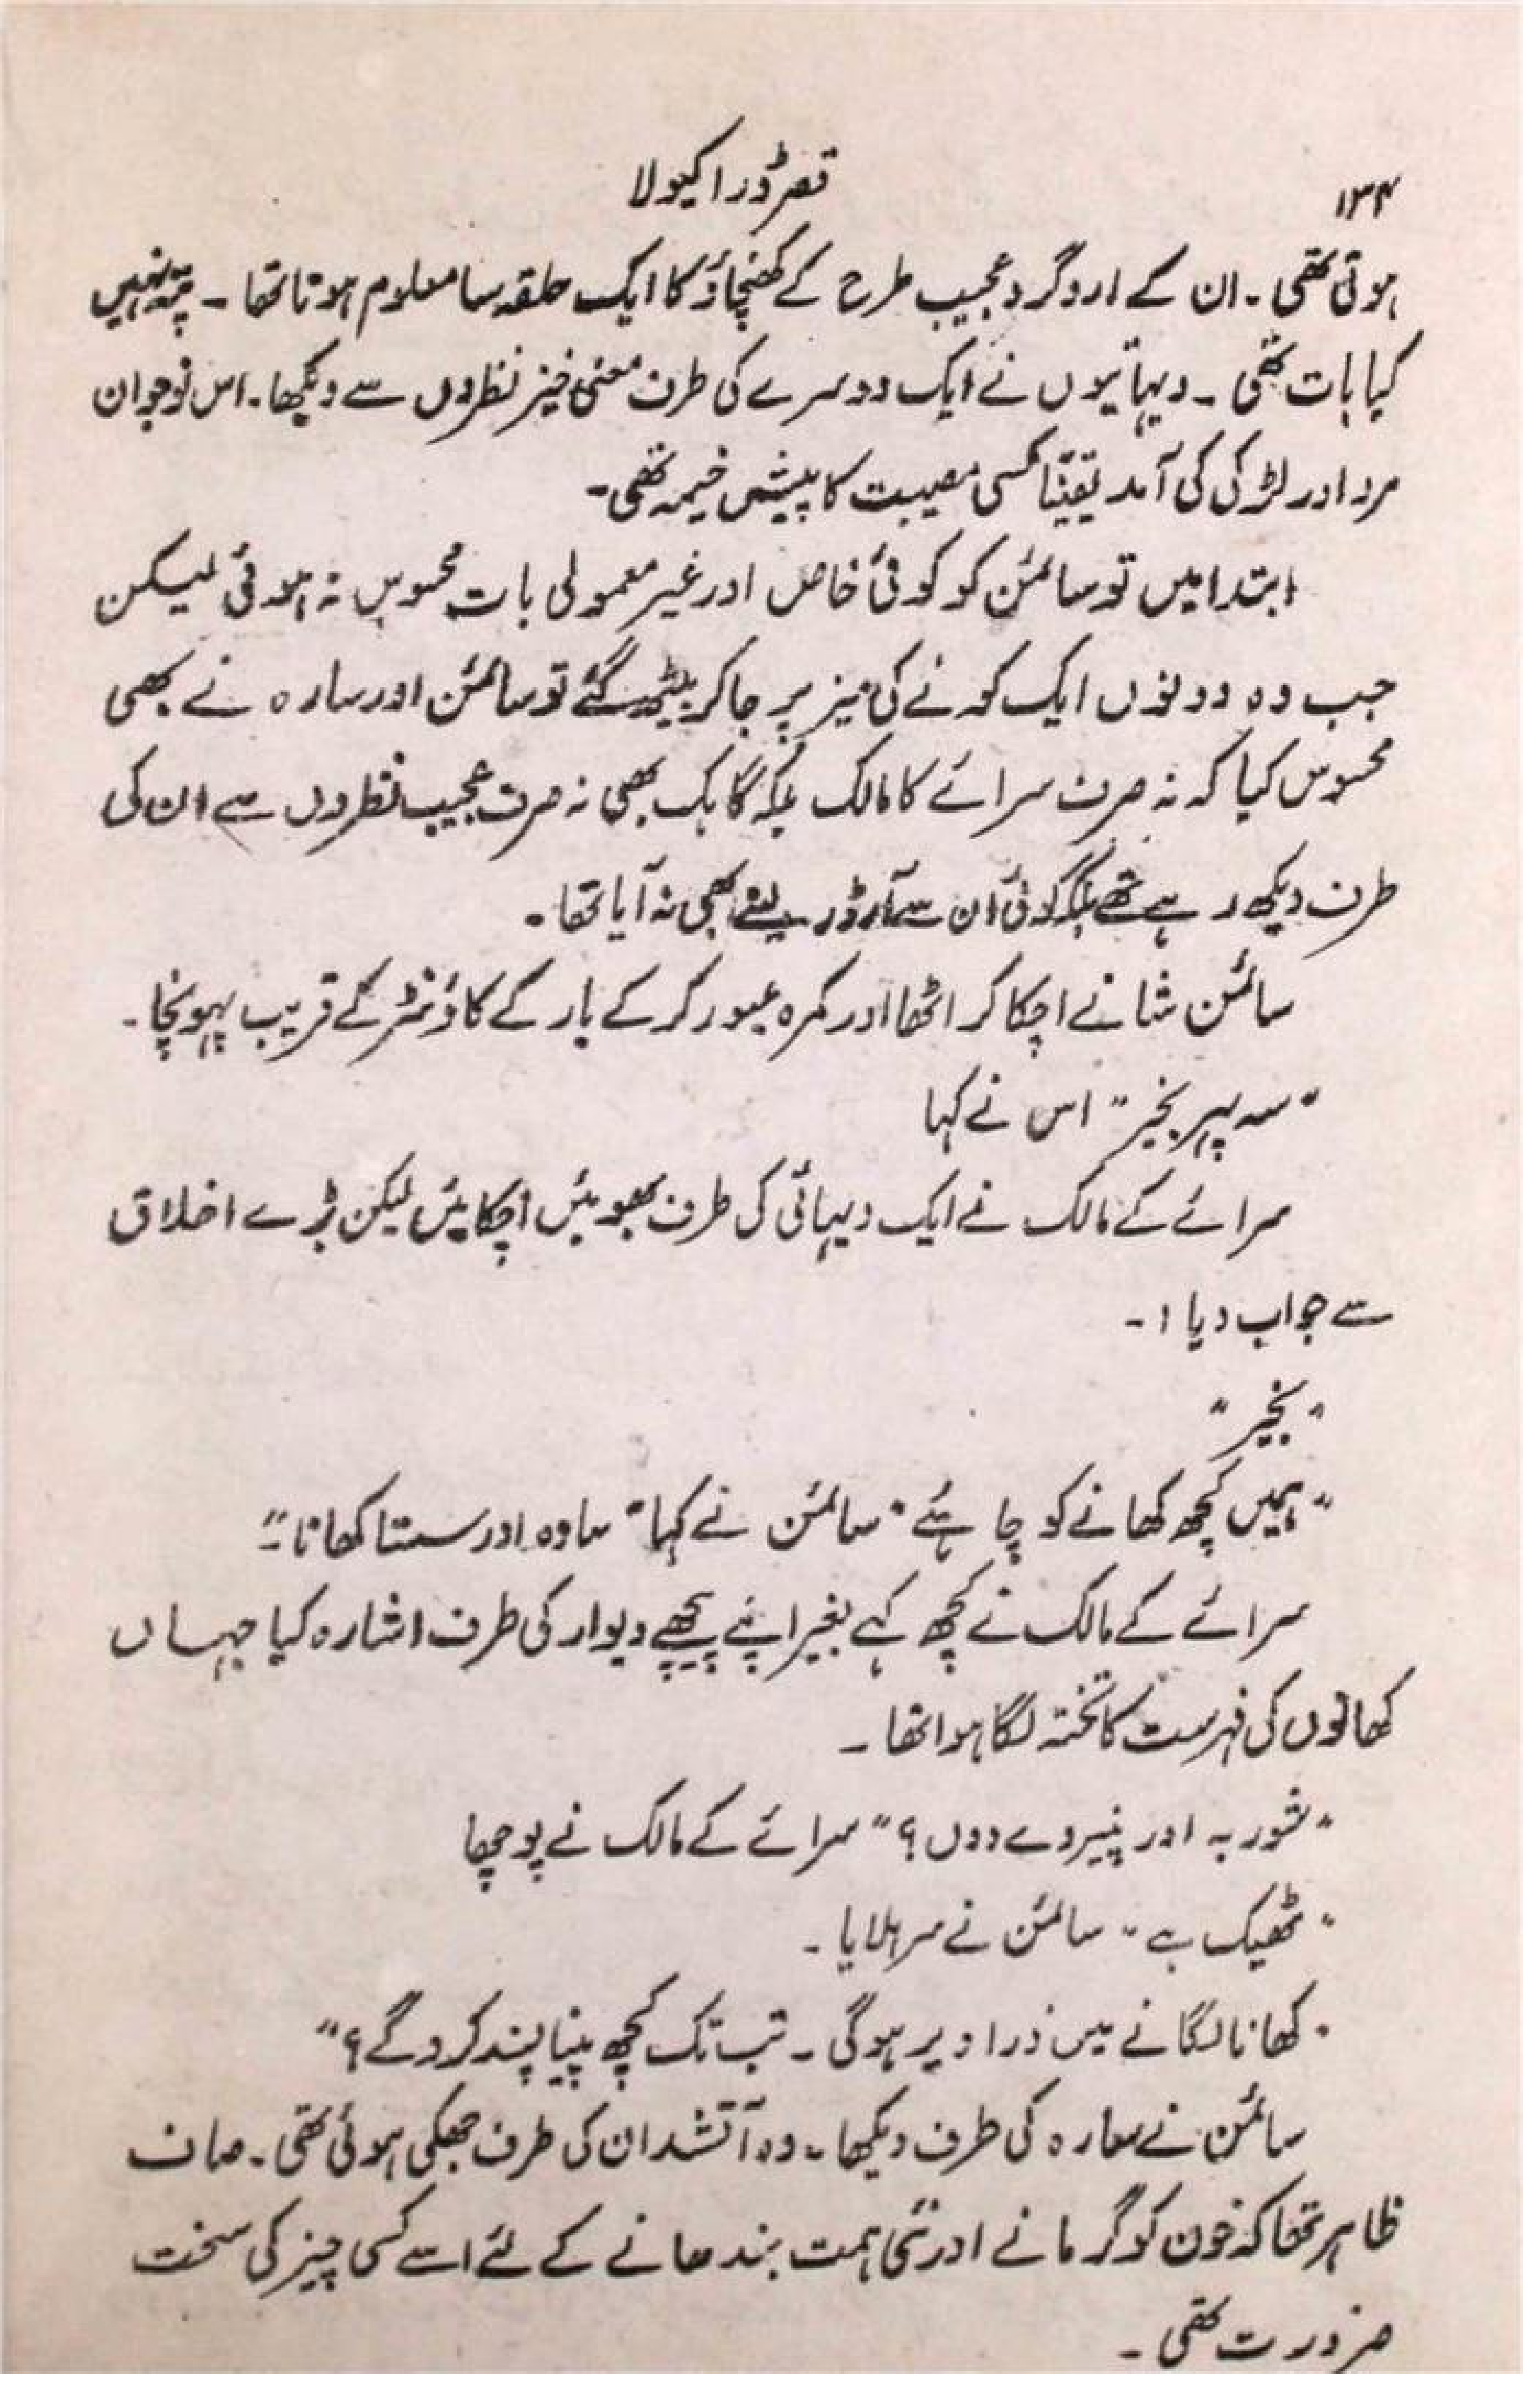 ۱۳۴
قصر ڈراکیولا
ہوتی تھی۔ ان کے ارد گرد عجیب طرح کے کھنچاؤ کا ایک حلقہ سا معلوم ہوتا تھا ۔ پتہ نہیں
کیا بات تھی ۔ دیہاتیوں نے ایک دوسرے کی طرف معنی خیز نظروں سے دیکھا۔ اس نوجوان
مرد اور لڑکی کی آمد یقیناً کسی مصیبت کا پیش خیمہ تھی۔
ابتدا میں تو سائمن کو کوئی خاص اور غیر معمولی بات محسوس نہ ہوئی لیکن
جب وہ دونوں ایک کونے کی میز پر جا کر بیٹھ گئے تو سائمن اور سارہ نے بھی
محسوس کیا کہ نہ صرف سرائے کا مالک بلکہ گاہک بھی نہ صرف عجیب نظروں سے ان کی
طرف دیکھ رہے تھے بلکہ کوئی ان سے آرڈر لینے بھی نہ آیا تھا ۔
سائمن شانے اچکا کر اٹھا اور کمرہ عبور کر کے بار کے کاؤنٹر کے قریب پہونچا ۔
"سہ پہر بخیر" اس نے کہا
سرائے کے مالک نے ایک دیہاتی کی طرف بھوئیں اچکائیں لیکن بڑے اخلاق
سے جواب دیا :۔
"بخیر"
"ہمیں کچھ کھانے کو چاہئے" سائمن نے کہا "سادہ اور سستا کھانا۔"
سرائے کے مالک نے کچھ کہے بغیر اپنے پیچھے دیوار کی طرف اشارہ کیا جہاں
کھانوں کی فہرست کا تختہ لگا ہوا تھا ۔
"شوربہ اور پنیر دے دوں؟" سرائے کے مالک نے پوچھا
"ٹھیک ہے" سائمن نے سر ہلایا ۔
"کھانا لگانے میں ذرا دیر ہوگی ۔ تب تک کچھ پینا پسند کرو گے؟"
سائمن نے سارہ کی طرف دیکھا۔ وہ آتشدان کی طرف جھکی ہوئی تھی۔ صاف
ظاہر تھا کہ خون کو گرمانے اور نئی ہمت بندھانے کے لئے اسے کسی چیز کی سخت
ضرورت تھی ۔